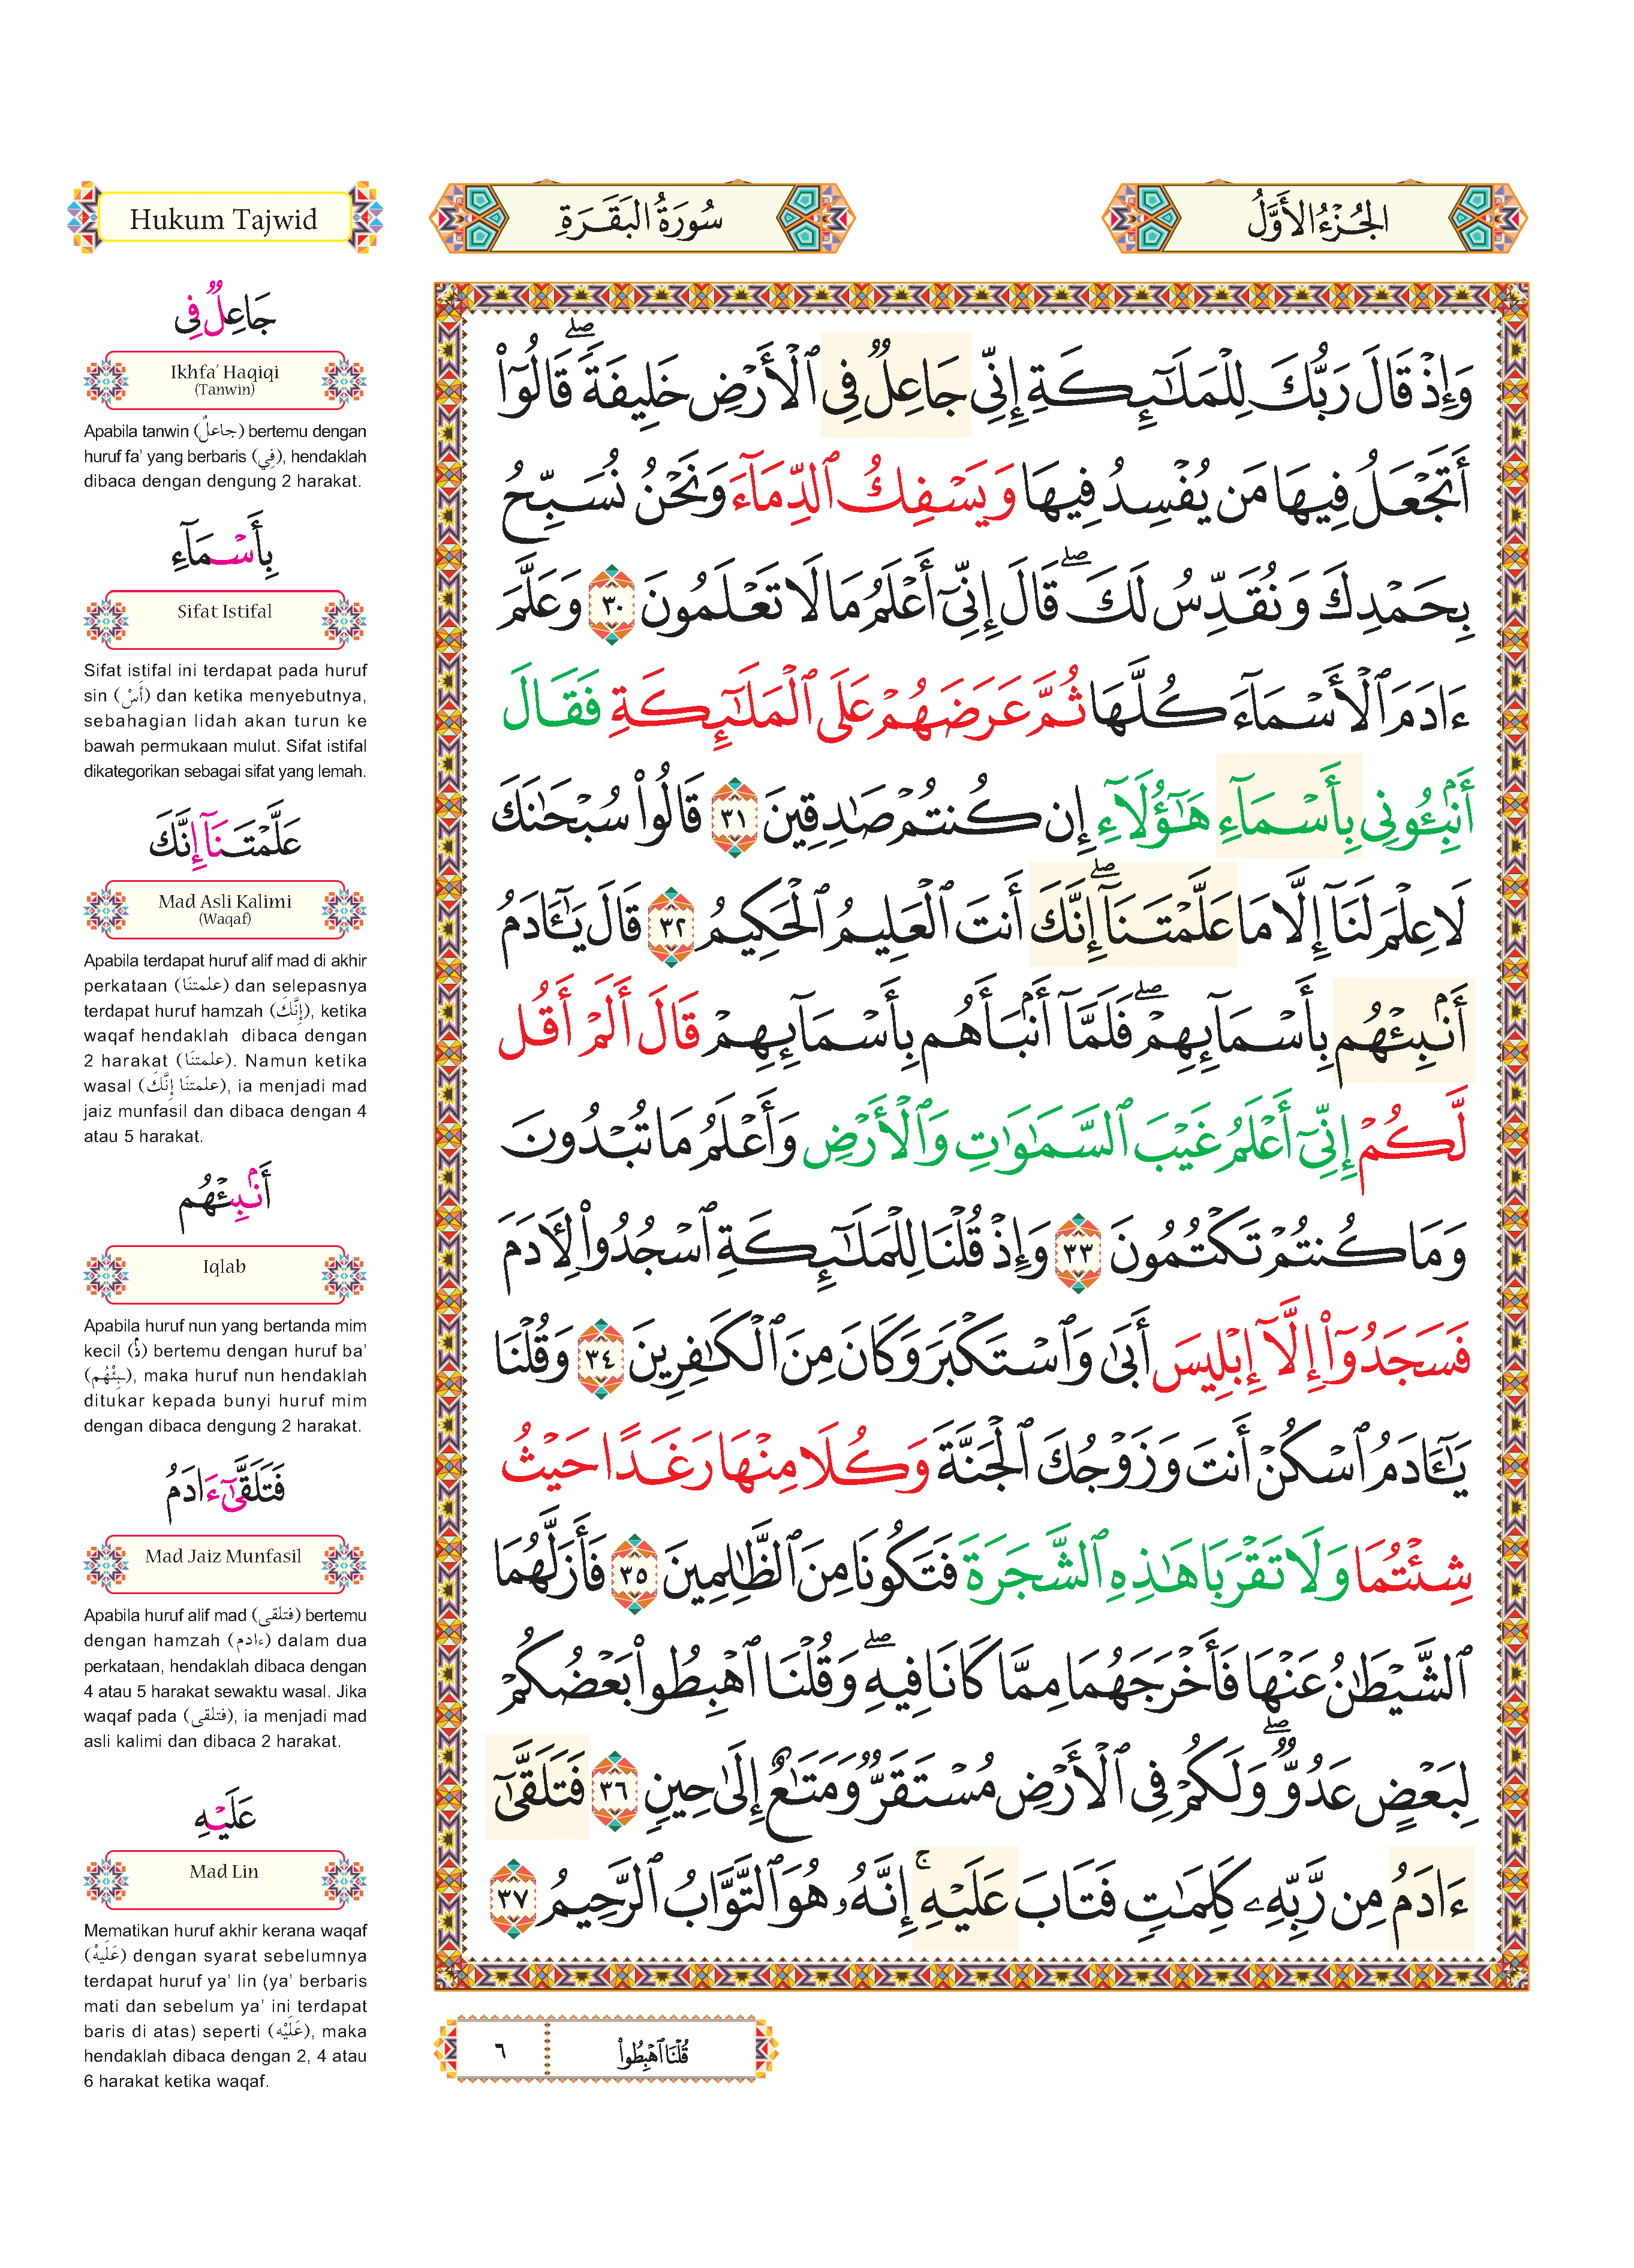 Hukum Tajwid
سُورَةُ البَقَرَةِ
الجُزْءُ الأَوَّلُ
جَاعِلٌ فِى
Ikhfa’ Haqiqi
(Tanwin)
Apabila tanwin (جاعلٌ) bertemu dengan
huruf fa’ yang berbaris (فِي), hendaklah
dibaca dengan dengung 2 harakat.
بِأَسْمَآءِ
Sifat Istifal
Sifat istifal ini terdapat pada huruf
sin (أَسْ) dan ketika menyebutnya,
sebahagian lidah akan turun ke
bawah permukaan mulut. Sifat istifal
dikategorikan sebagai sifat yang lemah.
عَلَّمْتَنَآ إِنَّكَ
Mad Asli Kalimi
(Waqaf)
Apabila terdapat huruf alif mad di akhir
perkataan (علمتنَا) dan selepasnya
terdapat huruf hamzah (إِنَّكَ), ketika
waqaf hendaklah dibaca dengan
2 harakat (علمتنَا). Namun ketika
wasal (علمتنَا إِنَّكَ), ia menjadi mad
jaiz munfasil dan dibaca dengan 4
atau 5 harakat.
أَنۢبِئْهُم
Iqlab
Apabila huruf nun yang bertanda mim
kecil (نۢ) bertemu dengan huruf ba’
(بِئْهُم), maka huruf nun hendaklah
ditukar kepada bunyi huruf mim
dengan dibaca dengung 2 harakat.
فَتَلَقَّىٰٓ ءَادَمُ
Mad Jaiz Munfasil
Apabila huruf alif mad (فتلقى) bertemu
dengan hamzah (ءادم) dalam dua
perkataan, hendaklah dibaca dengan
4 atau 5 harakat sewaktu wasal. Jika
waqaf pada (فتلقى), ia menjadi mad
asli kalimi dan dibaca 2 harakat.
عَلَيْهِ
Mad Lin
Mematikan huruf akhir kerana waqaf
(عَلَيْهْ) dengan syarat sebelumnya
terdapat huruf ya’ lin (ya’ berbaris
mati dan sebelum ya’ ini terdapat
baris di atas) seperti (عَلَيْهِ), maka
hendaklah dibaca dengan 2, 4 atau
6 harakat ketika waqaf.
وَإِذْ قَالَ رَبُّكَ لِلْمَلَـٰٓئِكَةِ إِنِّى جَاعِلٌ فِى ٱلْأَرْضِ خَلِيفَةً ۖ قَالُوٓا۟
أَتَجْعَلُ فِيهَا مَن يُفْسِدُ فِيهَا وَيَسْفِكُ ٱلدِّمَآءَ وَنَحْنُ نُسَبِّحُ
بِحَمْدِكَ وَنُقَدِّسُ لَكَ ۖ قَالَ إِنِّىٓ أَعْلَمُ مَا لَا تَعْلَمُونَ ٣٠ وَعَلَّمَ
ءَادَمَ ٱلْأَسْمَآءَ كُلَّهَا ثُمَّ عَرَضَهُمْ عَلَى ٱلْمَلَـٰٓئِكَةِ فَقَالَ
أَنۢبِـُٔونِى بِأَسْمَآءِ هَـٰٓؤُلَآءِ إِن كُنتُمْ صَـٰدِقِينَ ٣١ قَالُوا۟ سُبْحَـٰنَكَ
لَا عِلْمَ لَنَآ إِلَّا مَا عَلَّمْتَنَآ ۖ إِنَّكَ أَنتَ ٱلْعَلِيمُ ٱلْحَكِيمُ ٣٢ قَالَ يَـٰٓـَٔادَمُ
أَنۢبِئْهُم بِأَسْمَآئِهِمْ ۖ فَلَمَّآ أَنۢبَأَهُم بِأَسْمَآئِهِمْ قَالَ أَلَمْ أَقُل
لَّكُمْ إِنِّىٓ أَعْلَمُ غَيْبَ ٱلسَّمَـٰوَٰتِ وَٱلْأَرْضِ وَأَعْلَمُ مَا تُبْدُونَ
وَمَا كُنتُمْ تَكْتُمُونَ ٣٣ وَإِذْ قُلْنَا لِلْمَلَـٰٓئِكَةِ ٱسْجُدُوا۟ لِـَٔادَمَ
فَسَجَدُوٓا۟ إِلَّآ إِبْلِيسَ أَبَىٰ وَٱسْتَكْبَرَ وَكَانَ مِنَ ٱلْكَـٰفِرِينَ ٣٤ وَقُلْنَا
يَـٰٓـَٔادَمُ ٱسْكُنْ أَنتَ وَزَوْجُكَ ٱلْجَنَّةَ وَكُلَا مِنْهَا رَغَدًا حَيْثُ
شِئْتُمَا وَلَا تَقْرَبَا هَـٰذِهِ ٱلشَّجَرَةَ فَتَكُونَا مِنَ ٱلظَّـٰلِمِينَ ٣٥ فَأَزَلَّهُمَا
ٱلشَّيْطَـٰنُ عَنْهَا فَأَخْرَجَهُمَا مِمَّا كَانَا فِيهِ ۖ وَقُلْنَا ٱهْبِطُوا۟ بَعْضُكُمْ
لِبَعْضٍ عَدُوٌّ ۖ وَلَكُمْ فِى ٱلْأَرْضِ مُسْتَقَرٌّ وَمَتَـٰعٌ إِلَىٰ حِينٍ ٣٦ فَتَلَقَّىٰٓ
ءَادَمُ مِن رَّبِّهِۦ كَلِمَـٰتٍ فَتَابَ عَلَيْهِ ۚ إِنَّهُۥ هُوَ ٱلتَّوَّابُ ٱلرَّحِيمُ ٣٧
قُلْنَا ٱهْبِطُوا۟
٦